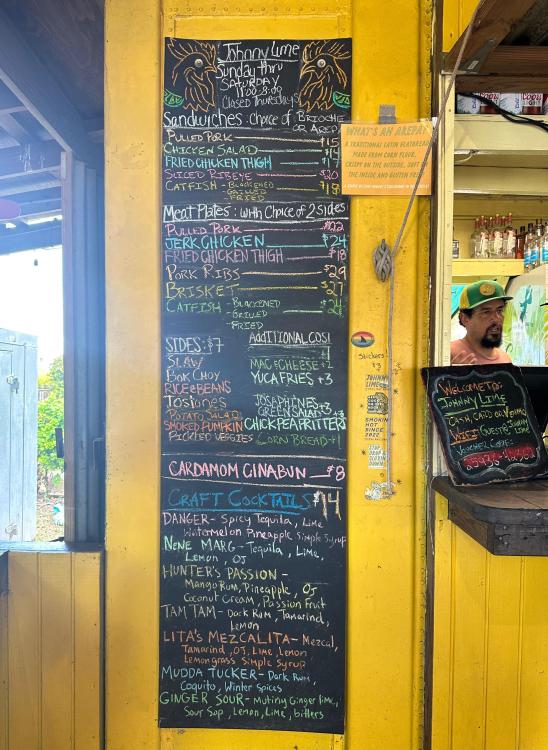 Johnny Lime
Sunday thru
Saturday
11:00-8:00
Closed Thursdays
Sandwiches: choice of Brioche
or Arepa
Pulled Pork $15
Chicken Salad $14
Fried Chicken Thigh $17
Sliced Ribeye $20
Catfish - Blackened $18
- Grilled
- Fried
WHAT'S AN AREPA?
A TRADITIONAL LATIN FLATBREAD
MADE FROM CORN FLOUR.
CRISPY ON THE OUTSIDE, SOFT ON
THE INSIDE AND GLUTEN FREE
Meat Plates: with Choice of 2 sides
Pulled Pork $22
Jerk Chicken $24
Fried Chicken Thigh $18
Pork Ribs $29
Brisket $27
Catfish - Blackened $24
- Grilled
- Fried
Sides: $7
Slaw
Bok Choy
Rice & Beans
Tostones
Potato Salad
Smoked Pumpkin
Pickled Veggies
Additional Cost
Mac & Cheese +2
Yuca Fries +3
Josaphines
Green Salad +3
Chickpea Fritter
Corn Bread +1
Cardamom Cinabun $8
Craft Cocktails $14
Danger - Spicy Tequila, Lime
Watermelon Pineapple Simple Syrup
Nene Marg - Tequila, Lime,
Lemon, OJ
Hunter's Passion -
Mango Rum, Pineapple, OJ
Coconut Cream, Passion Fruit
Tam Tam - Dark Rum, Tamarind,
Lemon
Lita's Mezcalita - Mezcal,
Tamarind, OJ, Lime, Lemon
Lemongrass Simple Syrup
Mudda Tucker - Dark Rum,
Coquito, Winter Spices
Ginger Sour - Mutiny Ginger lime,
Sour Sop, Lemon, Lime, bitters
Stickers
$3
JOHNNY
LIME
SMOKIN
HOT
SINCE
2022
Welcome to:
Johnny Lime
Cash, Card or Venmo
Wifi: Guests: Johnny
Lime
Voucher Code: